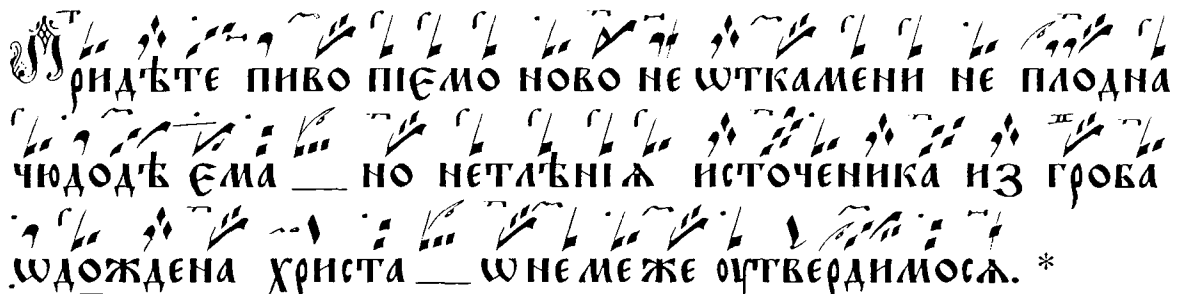 Придѣте пиво пїемо ново не ѿткамени не плодна
чюдодѣ ема но нетлѣнїѧ источеника из гроба
ѡдождена христа ѡ немеже оутвердимосѧ. *